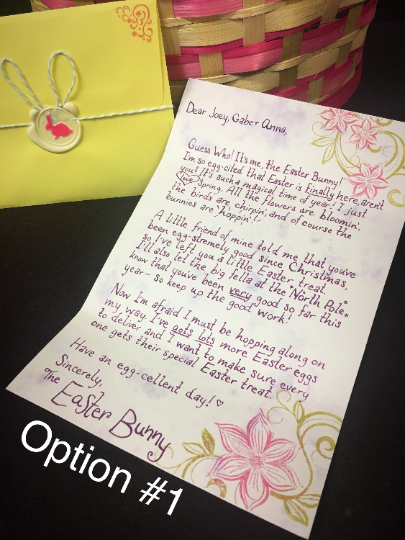 Dear Joey, Gabe + Anna,
Guess Who! It's me, the Easter Bunny!
I'm so egg-cited that Easter is finally here, aren't
you? It's such a magical time of year! I just
love Spring. All the flowers are bloomin',
the birds are chirpin', and of course the
bunnies are hoppin'!
A little friend of mine told me that you've
been egg-stremely good since Christmas,
so I've left you a little Easter treat.
I'll also let the big fella at the "North Pole"
know that you've been very good so far this
year-- so keep up the good work!
Now I'm afraid I must be hopping along on
my way. I've gots lots more Easter eggs
to deliver and I want to make sure every
one gets their special Easter treat.
Have an egg-cellent day! ♡
Sincerely,
The Easter Bunny
Option #1